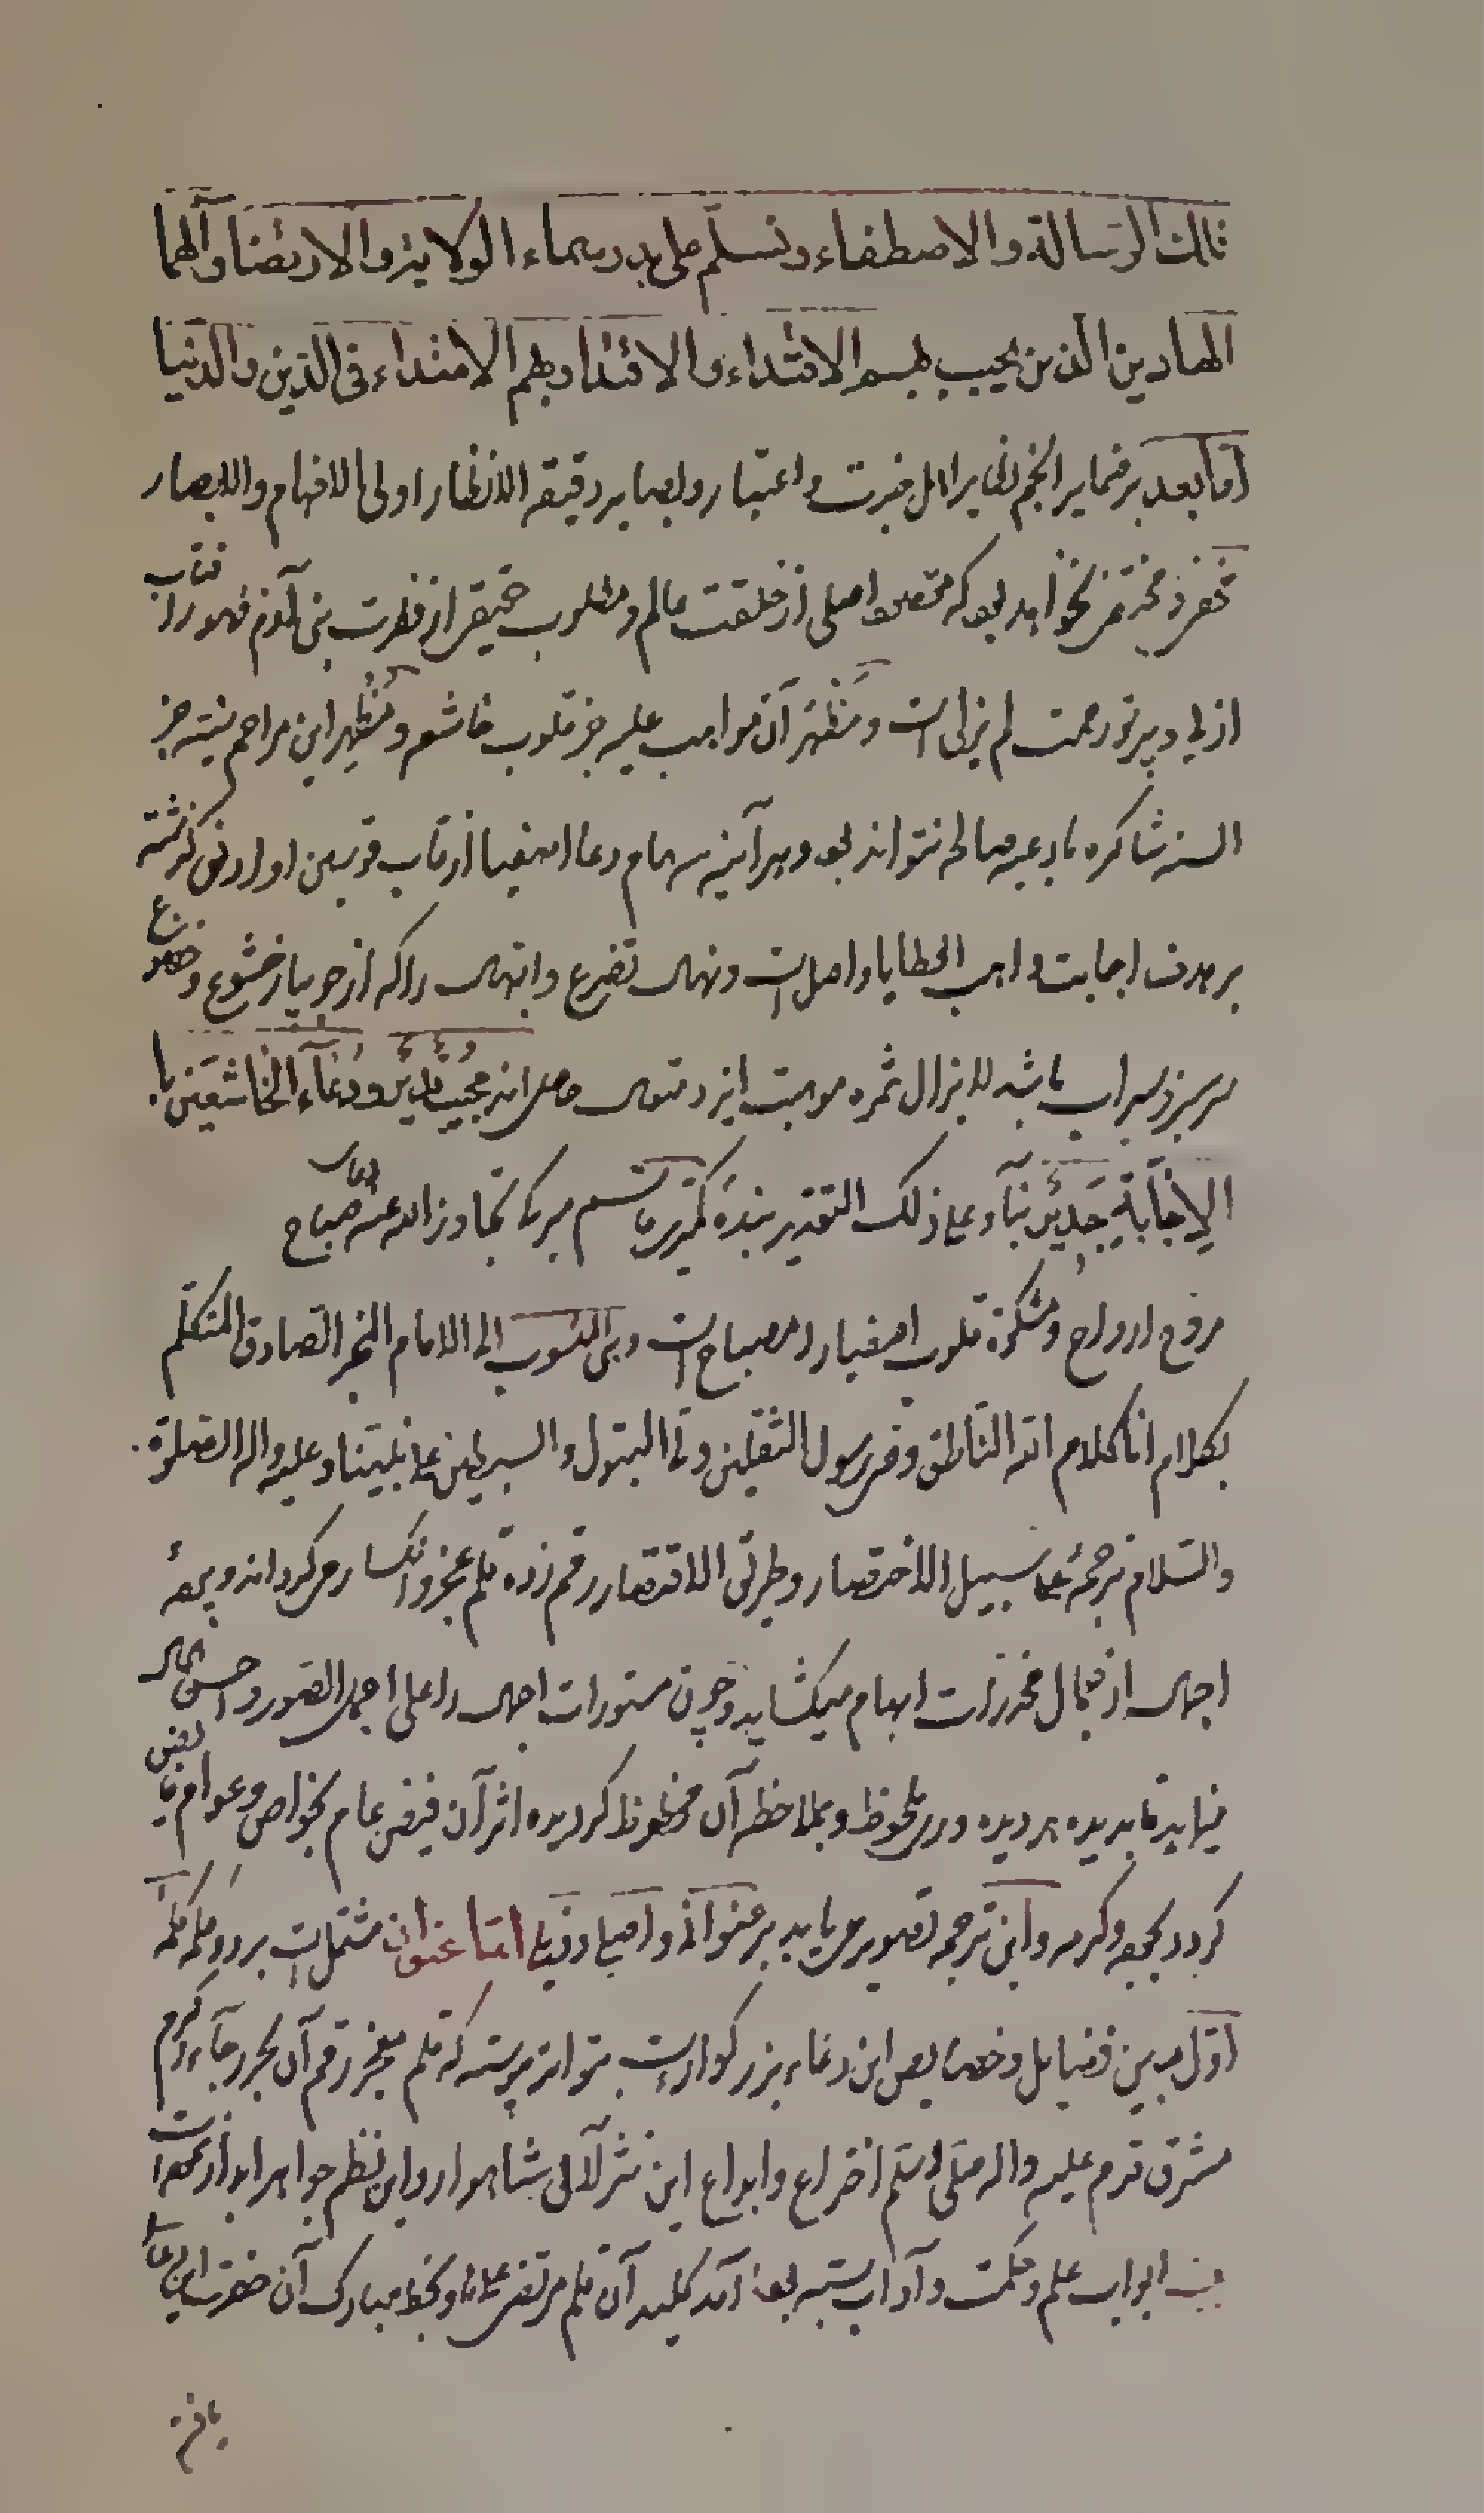 فلك الرسالة والاصطفاء ونسلّم على بدر سماء الولاية والارتضا وآلهما
الهادين الذين يجب بهم الاقتداء والاقتدا وبهم الاهتداء فى الدّين والدّنيا
امّا بعد بر ضماير انجم نظاير اهل خبرت واعتبار وبصاير دقيقه الانظار اولى الافهام والابصار
مخفى و محتجب نخواهد بود كه مقصود اصلى از خلقت عالم ومطلوب حقيقى از فطرت بنى آدم ظهور آفتاب
ازلى و پرتو رحمت لم يزلى است ومَظْهَر آن مواهب عليه جز قلوب خاشعه ومُظْهِر اين مراحم سنيه جز
السنه شاكره بادعيه صالحه نتواند بود وهرآينه سهام دعا اصفيا از قاب قوسين او ادنى گذشته
بر هدف اجابت واهب العطايا واصل است ونهال تضرع وابتهال را كه از جويبار خشوع وخضوع
سرسبز وسيراب باشد لايزال ثمره موهبت ايزد متعال حاصل اند مُجيبٌ قديرٌ ودُعآء الخاشعين با
الاِجَابَةِ جَديرٌ بنآء على ذلك التقدير بندهٔ كمترين قاسم تجاوز الله عنه دعاى صباح
مروح ارواح ومشكوة قلوب اصفيا را مصباح است وهى المنسوب الى الامام الخبر الصادق المتكلّم
بكلام انا كلام الله النّاطق وصى رسول الثقلين والبتول والسبطين على نبيّنا وعليه واله الصلوة
والسّلام ترجمهٔ على سبيل الاختصار وطريق الاقتصار رقم زده قلم عجز وانكسار مى گرداند وپردهٔ
اجمال از جمال مخدرات ابهام ميگشايد وچون مستورات اجمال را على اجمل الصّور واحسن
مينمايد تا بديده هر ديده ورى ملحوظ وبملاحظه آن محظوظ گرديده اثر آن فيض عام بخواص وعوام فايض
گردد بجوده وكرمه واين ترجمه تصوير مى يابد بر عنوانى واصلى وذيلى امّا عنوان مشتمل است بر دو كلمه كلمهٔ
اوّل مبين فضايل وخصايص اين دعاء بزرگوارست بتواتر پيوسته كه قلم معجز رقم آن بحر سخآء وكرم
مشرق قدم عليه واله صلّى وسلّم اختراع وابداع اين نثر لآلى شاهوار واين نظم جواهر ابدار نموده است
ابواب علم وحكمت وآداب بسته بود آمد كليد آن قلم مرتضى على وبخط مبارك آن حضرت اين دعا
يافته